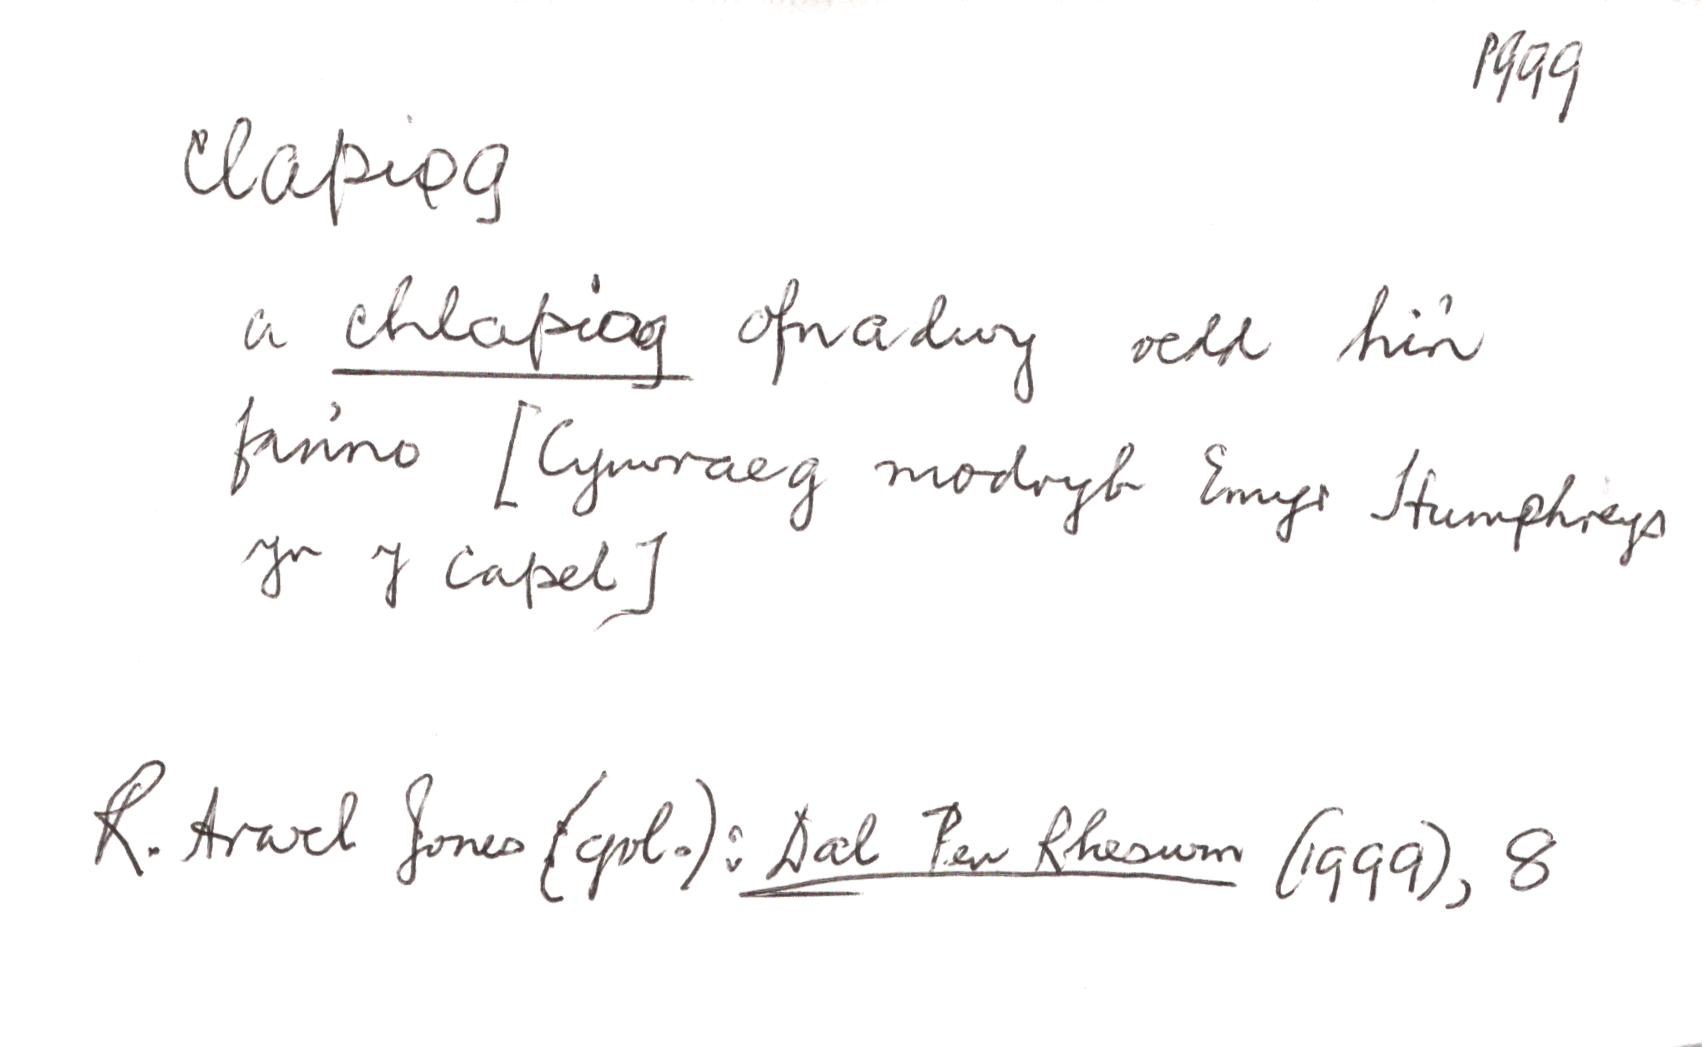 1999
clapiog
a chlapiog ofnadwy oedd hi'n
fan'no [Cymraeg modryb Emyr Humphreys
yn y capel]
R. Arwel Jones (gol.): Dal Pen Rheswm (1999), 8